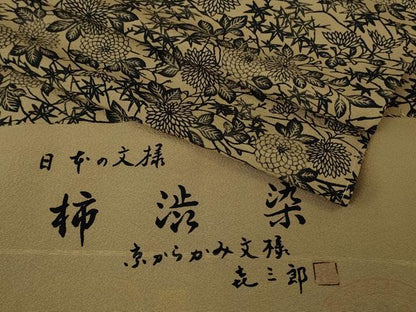 日本の文様
柿渋染
京からかみ文様
㐂三郎